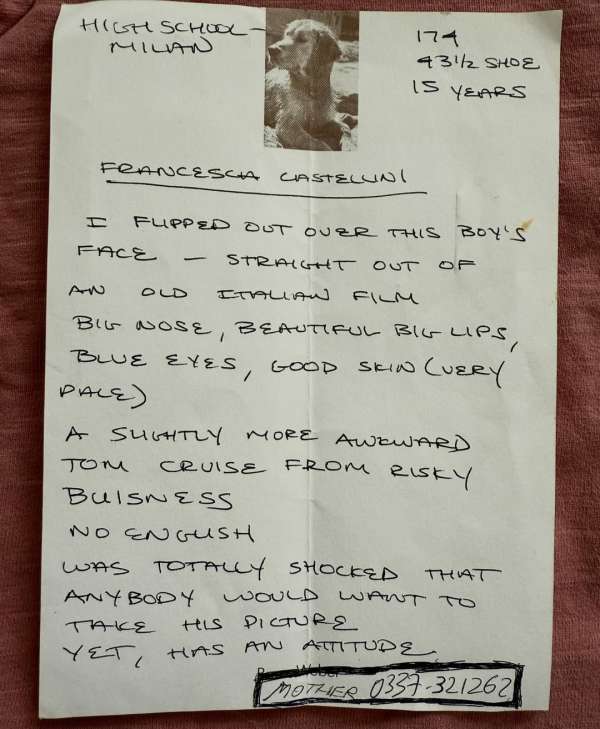 HIGH SCHOOL –
MILAN
174
43 1/2 SHOE
15 YEARS
FRANCESCA CASTELLINI
I FLIPPED OUT OVER THIS BOY'S
FACE – STRAIGHT OUT OF
AN OLD ITALIAN FILM
BIG NOSE, BEAUTIFUL BIG LIPS,
BLUE EYES, GOOD SKIN (VERY
PALE)
A SLIGHTLY MORE AWKWARD
TOM CRUISE FROM RISKY
BUISNESS
NO ENGLISH
WAS TOTALLY SHOCKED THAT
ANYBODY WOULD WANT TO
TAKE HIS PICTURE
YET, HAS AN ATTITUDE.
Weber
MOTHER 0337-321262